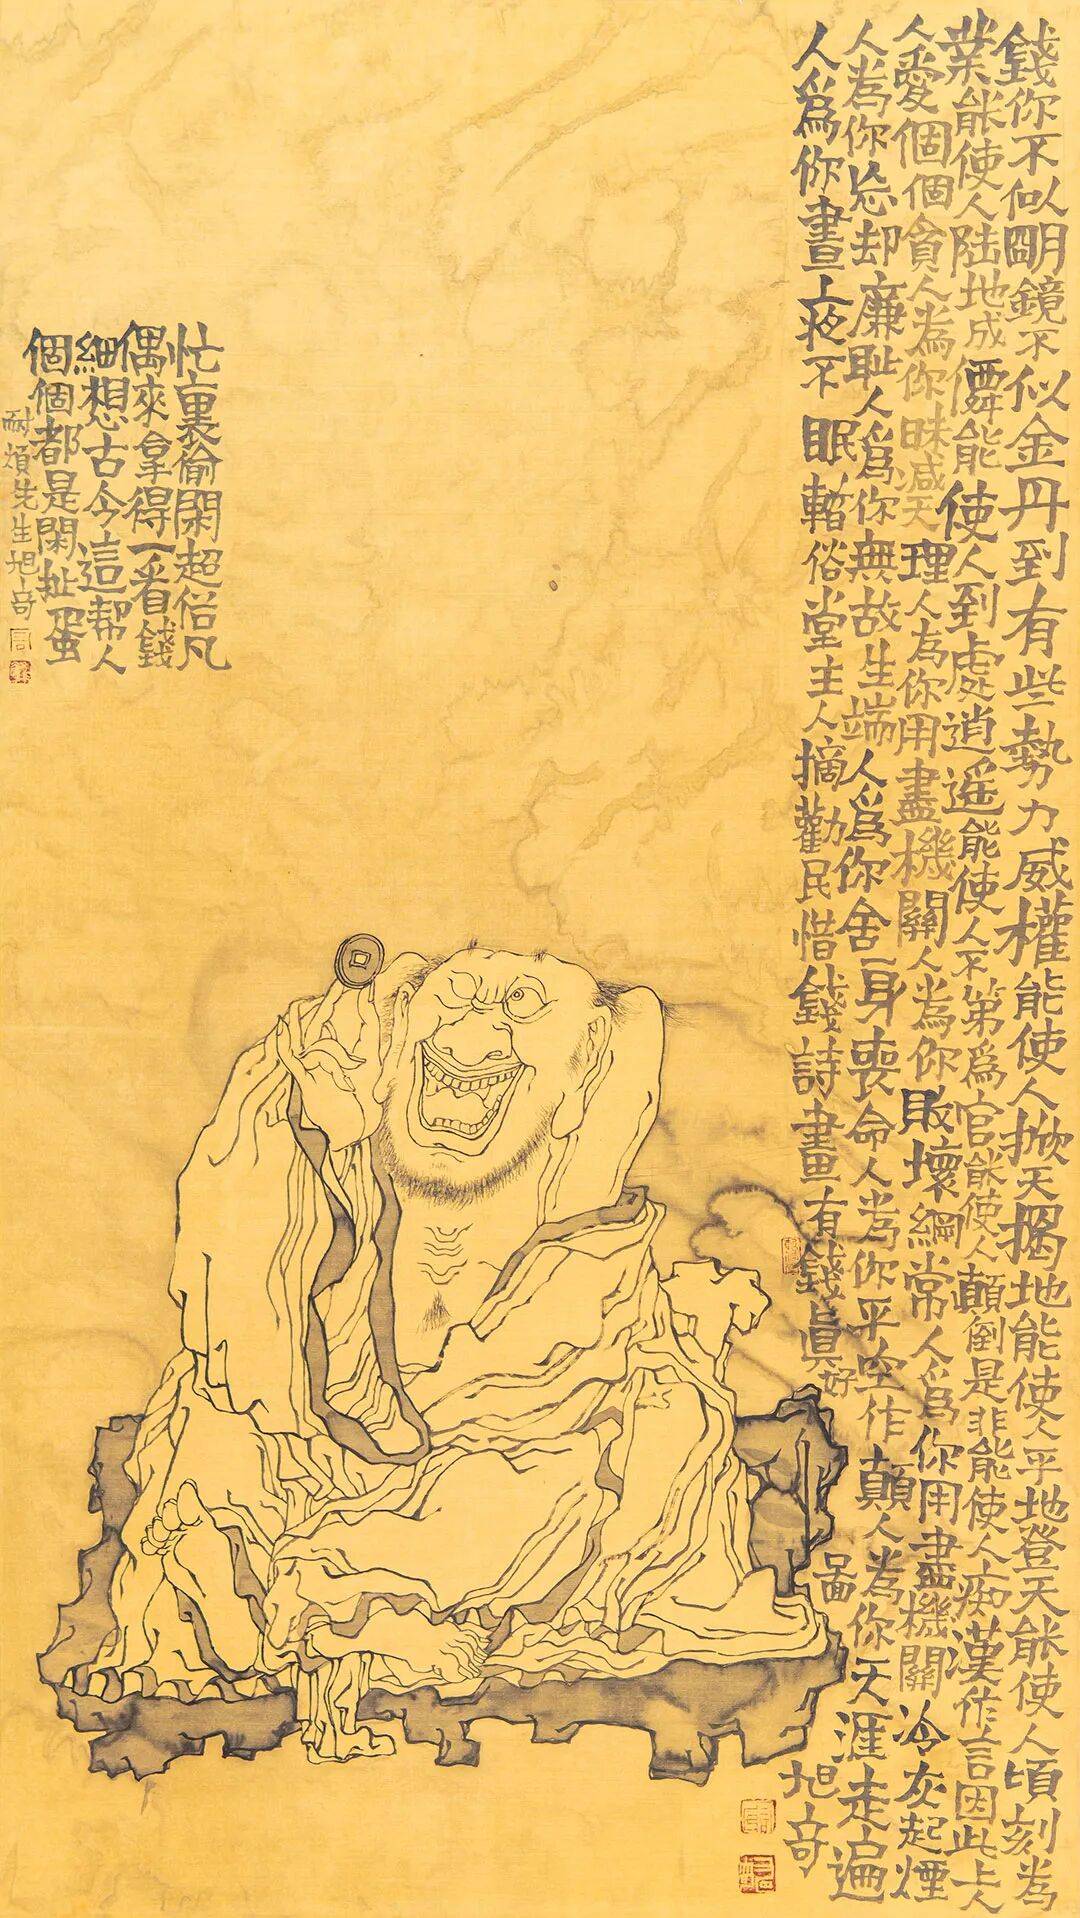 錢你不似明鏡不似金丹到有些勢力威權能使人掀天揭地能使人平地登天能使人頃刻為
業能使人陸地成僊能使人到處逍遥能使人不第爲官能使人顛倒是非能使人痴漢作言因此上人
人愛個個貪人為你昧减天理人為你用盡機關人為你敗壞綱常人爲你用盡機關冷灰起煙
人為你忘却廉耻人爲你無故生端人爲你舍身喪命人為你平空作顛人為你天涯走遍
人爲你晝夜不眠俗堂主人摘勸民惜錢詩畫有錢真好圖旭奇
忙裏偷閑超俗凡
偶來拿得一看錢
細想古今這幫人
個個都是閑扯蛋
耐煩先生旭奇